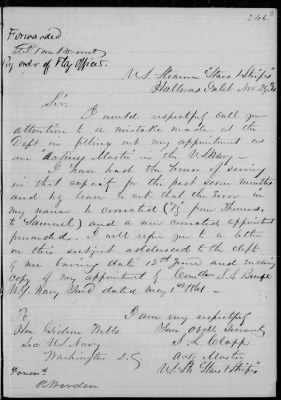 246
Forwarded
By order of Flag Officer.
U.S. Steamer "Stars & Stripes"
Hatteras Inlet Nov. 29th/61
Sir:
I would respectfully call your
attention to a mistake made at the
Dept in filling out my appointment as
an Acting Master in the U.S. Navy
I have had the honor of serving
in that capacity for the past seven months
and beg leave to ask that the error in
my name be corrected ( from Thomas
to Samuel) and a new corrected appointment
forwarded. I will refer you to a letter
on this subject addressed to the dept
of me bearing date 12th June and enclosing
copy of my appointment of
N.Y. Navy Yard dated May 1st 1861
I am very respectfully
To
Hon. Gideon Wells
Your Obdt Servant
Sec U.S. Navy
S. L. Clapp
Washington D.C.
Actg Master
U.S. St "Stars & Stripes"